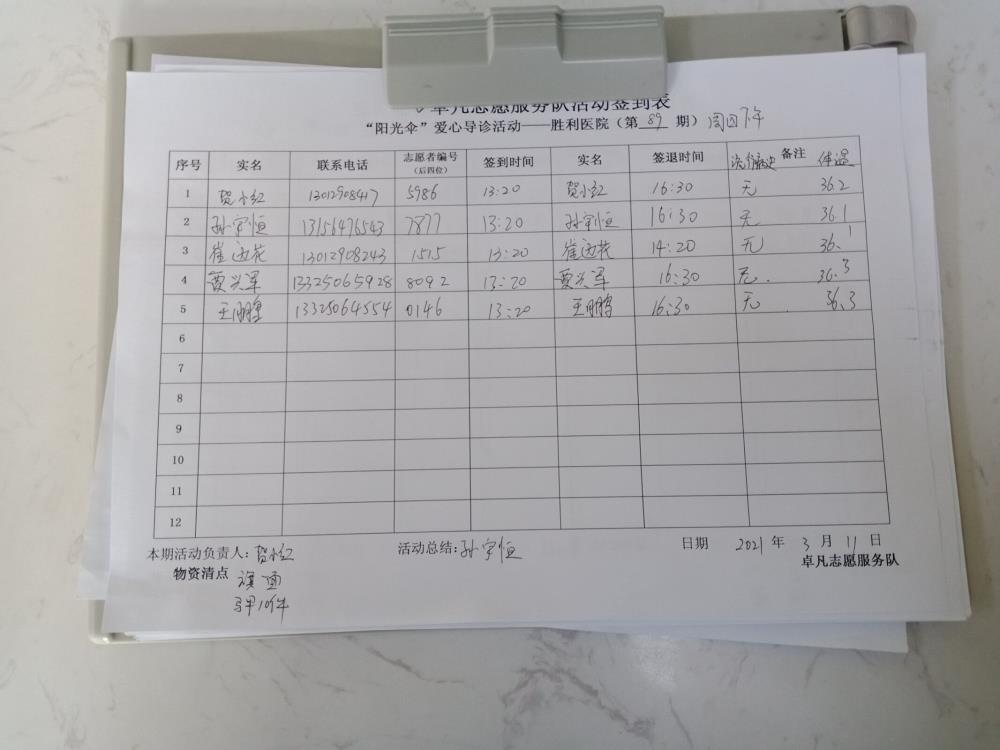 卓凡志愿服务队活动签到表
“阳光伞”爱心导诊活动——胜利医院（第 89 期） 周四下午
序号 实名 联系电话 志愿者编号（后四位） 签到时间 实名 签退时间 流行病史 备注 体温
1 贺小红 13012908417 5986 13:20 贺小红 16:30 无 36.2
2 孙宇恒 13156476543 7877 13:20 孙宇恒 16:30 无 36.1
3 崔花 13012908243 1515 13:20 崔花 14:20 无 36.1
4 贾兴军 13325065928 8092 13:20 贾兴军 16:30 无. 36.3
5 王鹏 13325064554 0146 13:20 王鹏 16:30 无 36.3
6
7
8
9
10
11
12
本期活动负责人：贺小红 活动总结：孙宇恒 日期 2021 年 3 月 11 日
物资清点 旗 卓凡志愿服务队
马甲10件